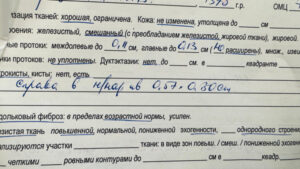 г.р. ОМЦ
изация ткани: хорошая, ограничена. Кожа: не изменена, утолщена до ___ см
жения: железистый, смешанный (с преобладанием железистой, жировой ткани), жировой.
ные протоки: междолевые до 0,11 см, главные до 0,13 см (не расширены), множ., извит
ки протоков: не уплотнены. Дуктэктазии: нет, до ___ см. в ___ квадранте
рокисты, кисты: нет, есть
справа в
0.57 × 0.30 см
дольковый фиброз: в пределах возрастной нормы, усилен.
езистая ткань повышенной, нормальной, пониженной эхогенности, однородного строени
ализируются участки ___ ткани: в виде зон повыш. / смеш. / пониженной эхоген
четкими ___ ровными контурами до ___ см в ___ квадр.